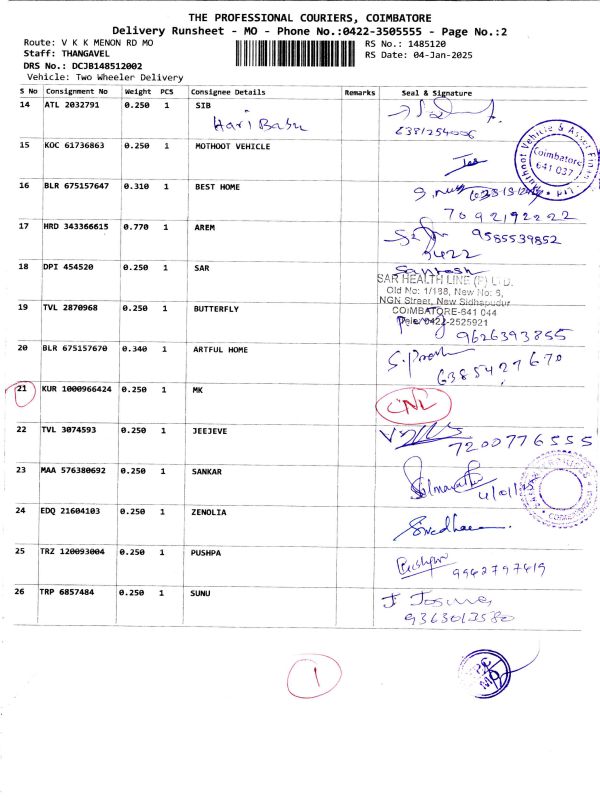 THE PROFESSIONAL COURIERS, COIMBATORE
Delivery Runsheet - MO - Phone No.:0422-3505555 - Page No.:2
Route: V K K MENON RD MO RS No.: 1485120
Staff: THANGAVEL RS Date: 04-Jan-2025
DRS No.: DCJB148512002
Vehicle: Two Wheeler Delivery
S No Consignment No Weight PCS Consignee Details Remarks Seal & Signature
14 ATL 2032791 0.250 1 SIB
Hari Babu
6381254006
15 KOC 61736863 0.250 1 MOTHOOT VEHICLE
Muthoot Vehicle & Asset Finance Ltd
Coimbatore
641 037
16 BLR 675157647 0.310 1 BEST HOME
7092192222
17 HRD 343366615 0.770 1 AREM
9585539852
3422
18 DPI 454520 0.250 1 SAR
Santosh
SAR HEALTH LINE (P) LTD.
Old No: 1/188, New No: 6,
NGN Street, New Sidhapudur
COIMBATORE-641 044
19 TVL 2870968 0.250 1 BUTTERFLY
Tele: 0422-2525921
9626393855
20 BLR 675157670 0.340 1 ARTFUL HOME
6385427670
21 KUR 1000966424 0.250 1 MK
CNL
22 TVL 3074593 0.250 1 JEEJEVE
7200776555
23 MAA 576380692 0.250 1 SANKAR
24 EDQ 21604103 0.250 1 ZENOLIA
25 TRZ 120093004 0.250 1 PUSHPA
Pushpa
9942797419
26 TRP 6857484 0.250 1 SUNU
9363013580
1